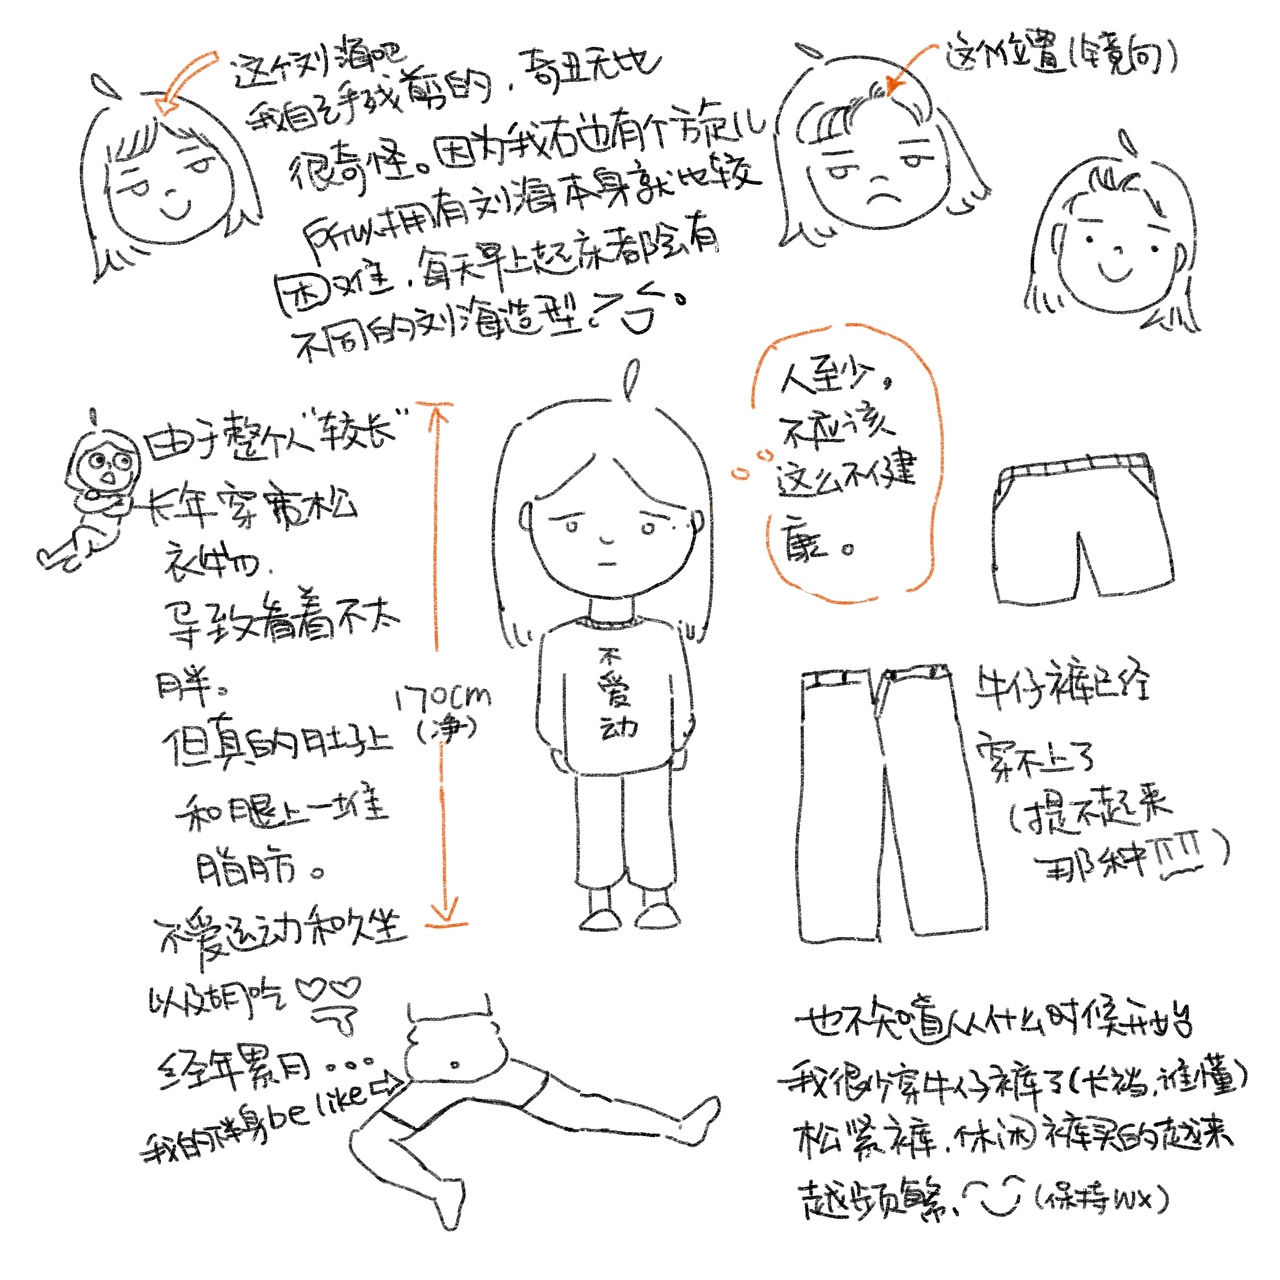 这个刘海吧
我自己手残剪的，奇丑无比
很奇怪。因为我右边有个旋儿
所以拥有刘海本身就比较
困难，每天早上起床都会有
不同的刘海造型？
这个位置(镜向)
由于整个人"较长"
长年穿宽松
衣物.
导致看着不太
胖。
但真的肚子上
和腿上一堆
脂肪。
不爱运动和久坐
以及胡吃
经年累月...
我的下半身be like
170cm
(净)
不
爱
动
人至少，
不应该
这么不健
康。
牛仔裤已经
穿不上了
(提不起来
那种 )
也不知道从什么时候开始
我很少穿牛仔裤了(卡裆,谁懂)
松紧裤.休闲裤买的越来
越频繁、(保持wx)